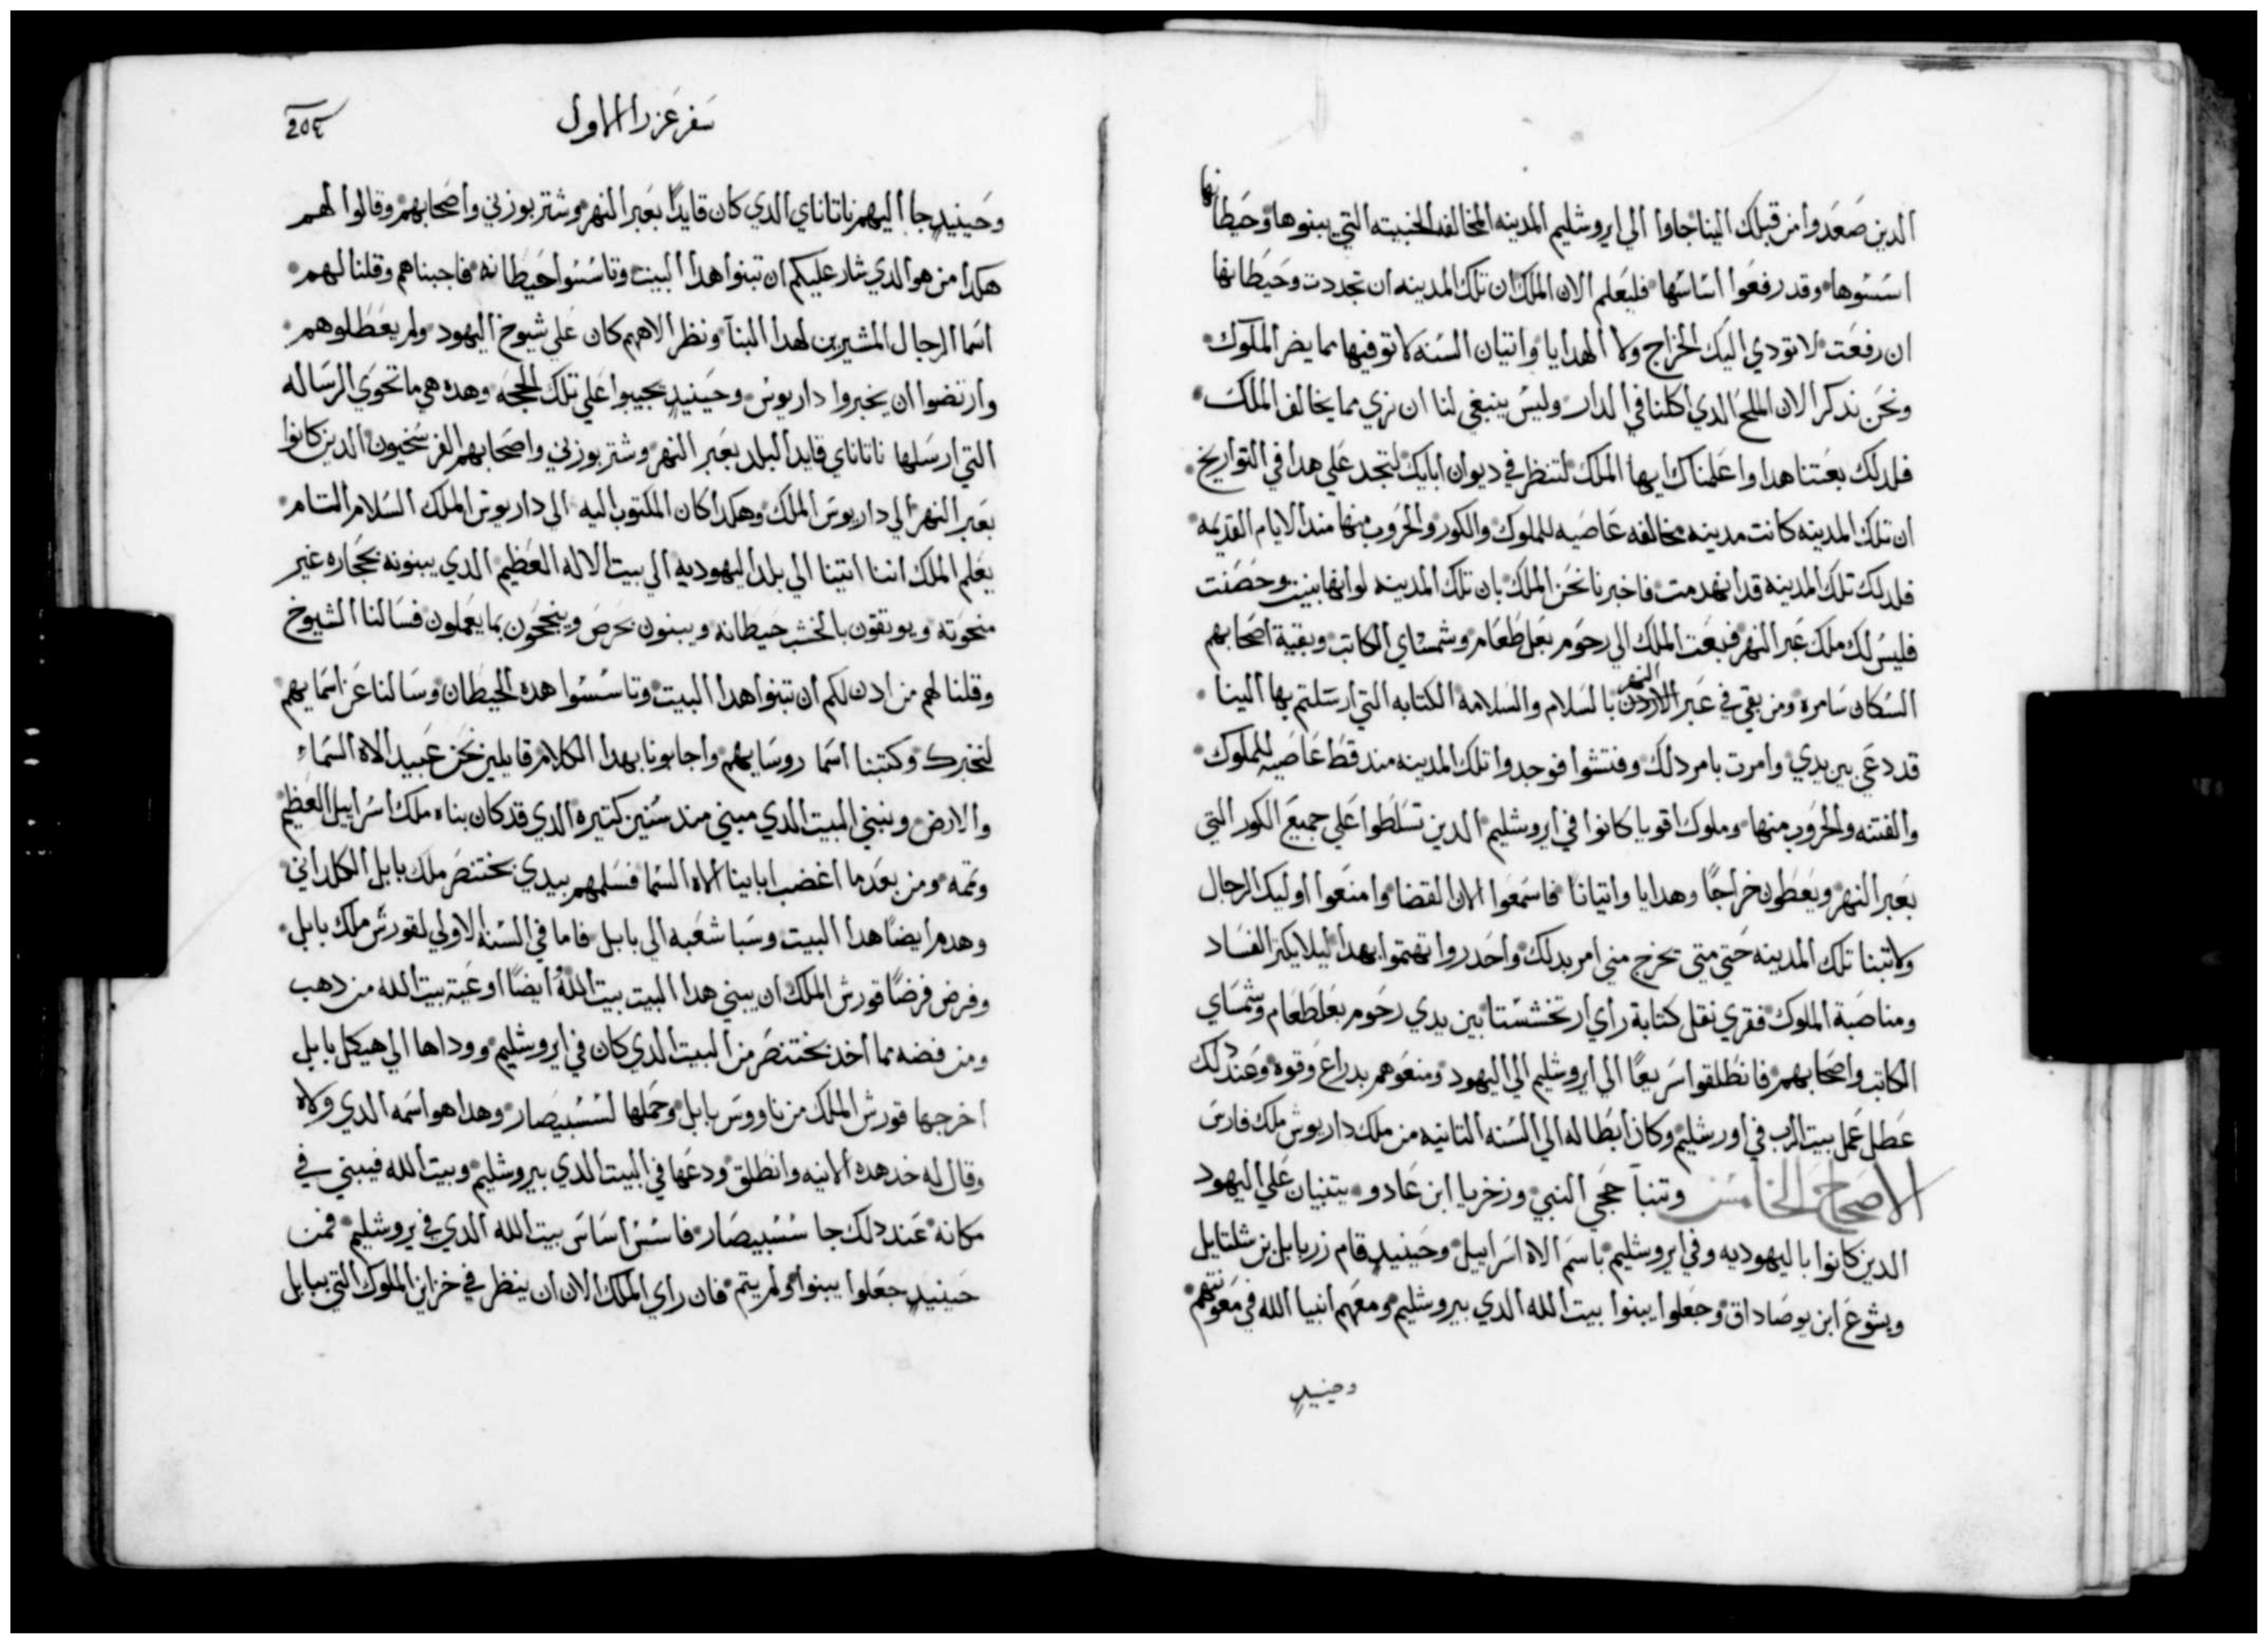 الدين صَعَدوا من قبلك الينا جاوا الي ايروشليم المدينه المخالفه الخبيته التي يبنوها وحَيطانها
اسَسُوها وقد رفعَوا اسَاسُها فليعَلم الان الملك ان تلك المدينه ان تجددت وحَيَطانها
ان رفعَت لا تودي اليك الخراج ولا الهدايا واتيان السَنه لا توفيها مما يضر الملوك
ونحَن ندكر الان الملح الدي اكلنا في الدار وليسَ ينبغي لنا ان نري مما يخالف الملك
فلدلك بعَتنا هدا واعَلمناك ايها الملك لتنظر في ديوان ابايك لتجد عَلي هدا في التواريخ
ان تلك المدينه كانت مدينه مخالفه عَاصَيه للملوك والكور والحروب منها مند الايام القديمَه
فلدلك تلك المدينه قد انهدمت فاخبرنا نحَن الملك بان تلك المدينه لو انها بنيت وحَصَنت
فليسَ لك ملك عَبر النهر فبعَت الملك الي رحَوم بعَل طَعَام وشمسَاي الكاتب وبقية اصَحابهم
السَكان سَامره ومن بقي في عَبر الاردن النهر بالسَلام والسَلامه الكتابه التي ارسَلتم بها الينا
قد دعَي بين يدي وامرت بامر دلك وفتشوا فوجدوا تلك المدينه مند قط عَاصَيه للملوك
والفتنه والحَروب منها وملوك اقويا كانوا في ايروشليم الدين تسَلطَوا عَلي جميعَ الكور التي
بعَبر النهر ويعَطَون خراجًا وهدايا واتيانًا فاسَمعَوا الان القضا وامنعَوا اوليك الرجال
ولا تبنا تلك المدينه حَتي متي تخرج مني امر بدلك واحَدروا تهتموا بهدا ليلا يكتر الفسَاد
ومناصَبة الملوك فقري نقل كتابة راي ارتخششتا بين يدي رحَوم بعَل طَعَام وشمسَاي
الكاتب واصَحابهم فانطَلقوا سَريعًا الي ايروشليم الي اليهود ومنعَوهم بدراعَ وقوه وعَند دلك
عَطل عَمل بيت الرب في اورشليم وكان ابطَاله الي السَنه التانيه من ملك داريوش ملك فارسَ
الاصَحاحَ الخامسَ وتنبآ حَجي النبي وزخريا ابن عَادو يتنبيان عَلي اليهود
الدين كانوا باليهوديه وفي ايروشليم باسَم الاه اسَراييل وحَينيدٍ قام زربابل بن شلتايل
ويشوعَ ابن يوصَاداق وجعَلوا يبنوا بيت الله الدي بيروشليم ومعَهم انبيا الله في معَونتهم
وحينيدٍ
سَفر عَزرا الاول
٢٥٤
وحَينيدٍ جا اليهم ناتاناي الدي كان قايدًا بعَبر النهر وشتر بوزني واصَحابهم وقالوا لهم
هكدا من هو الدي شار عليكم ان تبنوا هدا البيت وتاسَسُوا حَيطَانه فاجبناهم وقلنا لهم
اسَما الرجال المشيرين لهدا البنآ ونظر الاههم كان عَلي شيوخ اليهود ولم يعَطَلوهم
وارتضوا ان يخبروا داريوسَ وحَينيدٍ يجيبوا عَلي تلك الحجَه وهده هي ما تحوي الرسَاله
التي ارسَلها ناتاناي قايد البلد بعَبر النهر وشتر بوزني واصَحابهم الفرسَخيون الدين كانوا
بعَبر النهر الي داريوسَ الملك وهكدا كان المكتوب اليه الي داريوش الملك السَلام التام
يعَلم الملك اننا اتينا الي بلد اليهوديه الي بيت الاله العَظيم الدي يبنونه بحَجاره غير
منحَوته ويوتقون بالخشب حَيطَانه ويبنون بحَرصَ وينجحَون بما يعَملون فسَالنا الشيوخ
وقلنا لهم من ادن لكم ان تبنوا هدا البيت وتاسَسُوا هده الحيطَان وسَالنا عَن اسَمايهم
لنخبرك وكتبنا اسَما روسَايهم واجابونا بهدا الكلام قايلين نحَن عَبيد الاه السَماء
والارض ونبني البيت الدي مبني مند سَنين كتيره الدي قد كان بناه ملك اسَراييل العَظيم
وتمه ومن بعَد ما اغضب اباينا الاه السَما فسَلمهم بيدي بختنصَر ملك بابل الكلداني
وهدم ايضًا هدا البيت وسَبا شعَبه الي بابل فاما في السَنه الاولي لقورشَ ملك بابل
وفرض فرضًا قورش الملك ان يبني هدا البيت بيت الله ايضًا اوعَية بيت الله من دهب
ومن فضه مما اخد بختنصَر من البيت الدي كان في ايروشليم ووداها الي هيكل بابل
اخرجها قورش الملك من ناووسَ بابل وحَملها لسَسْبيصَار وهدا هو اسَمه الدي ولاه
وقال له خد هده الانيه وانطَلق ودعَها في البيت الدي بيروشليم وبيت الله فيبني في
مكانه عَند دلك جا سَسْبيصَار فاسَسَ اسَاسَ بيت الله الدي في يروشليم فمن
حَينيدٍ جعَلوا يبنوا ولم يتم فان راي الملك الان ان ينظر في خزاين الملوك التي ببابل